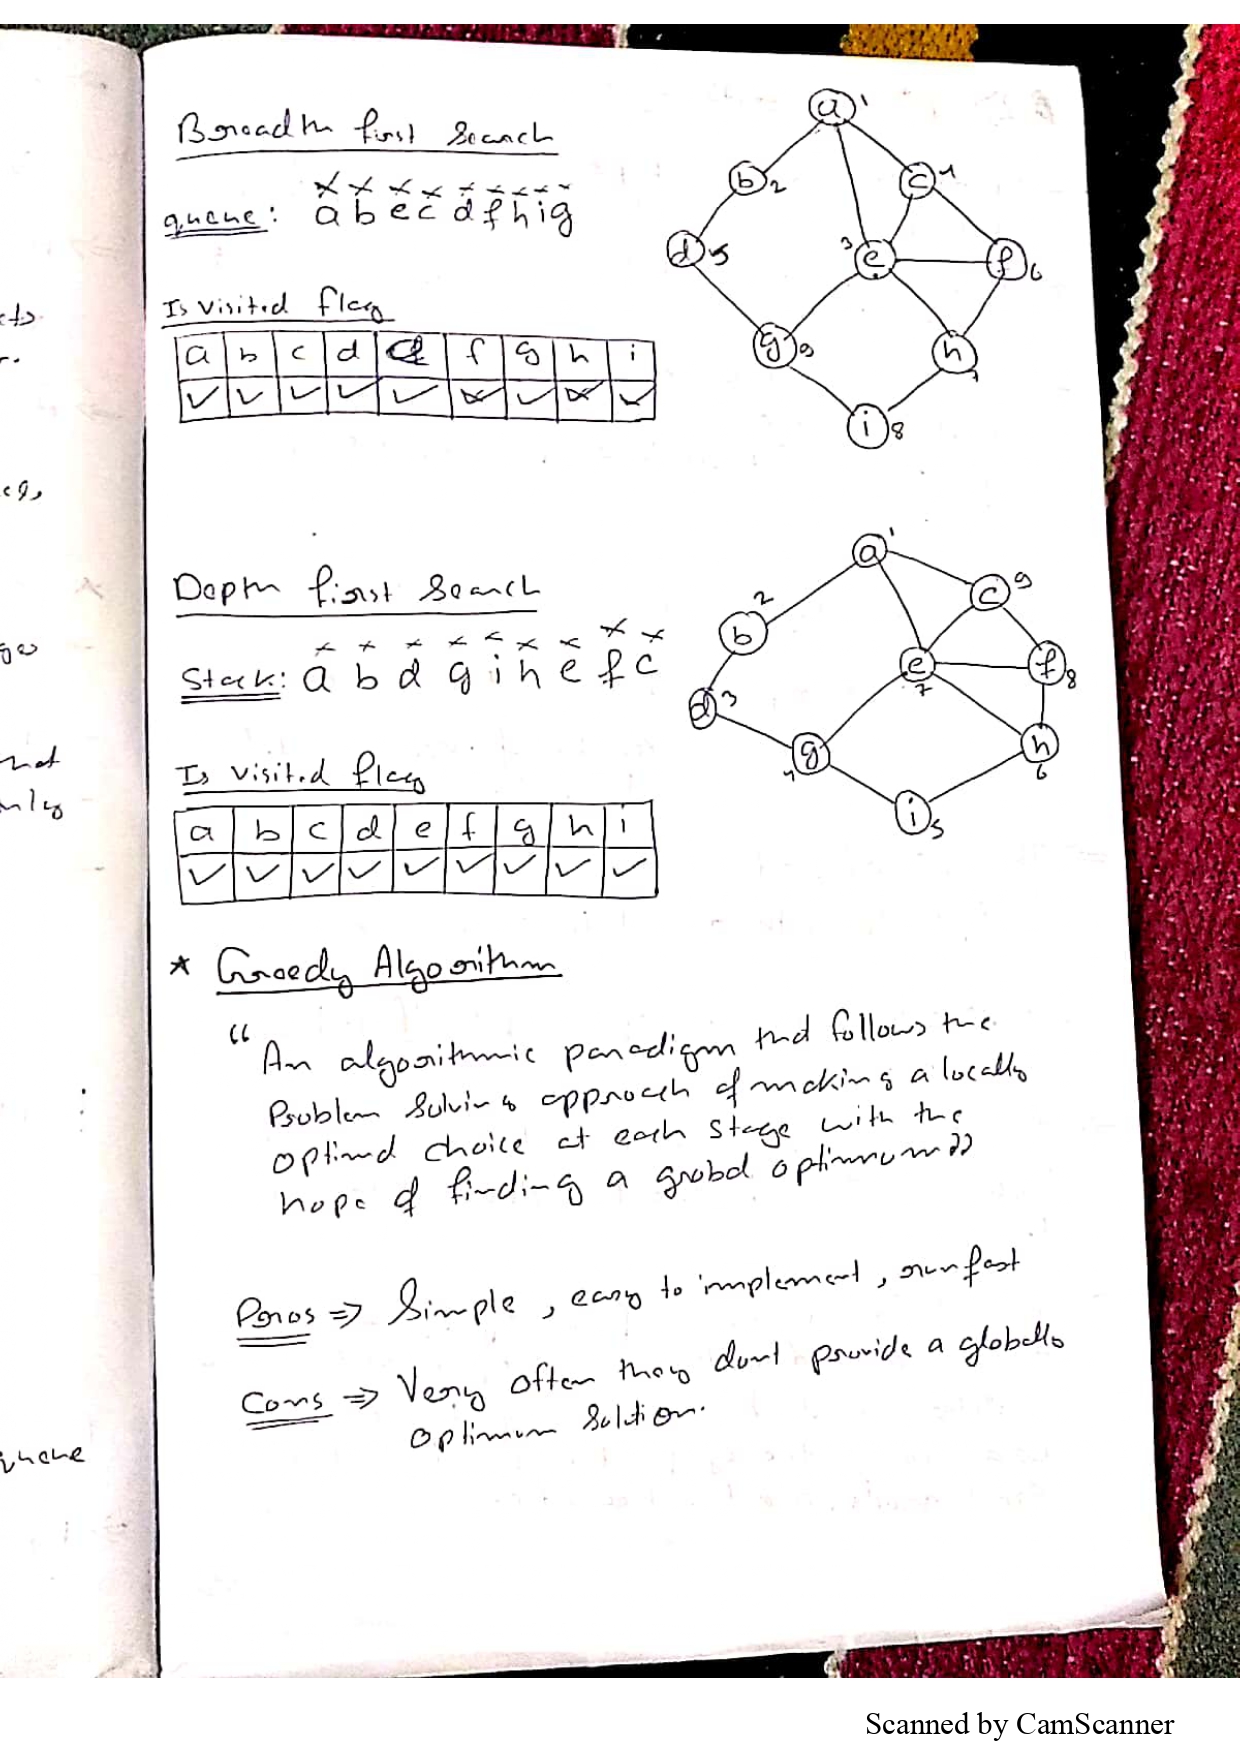 Breadth first Search
queue: a b e c d f h i g
Is visited flag
a b c d e f g h i
a 1
b 2
c 4
d 5
3 e
f 6
g 9
h 7
i 8
Depth first Search
Stack: a b d g i h e f c
Is visited flag
a b c d e f g h i
a 1
c 9
b 2
e 7
f 8
d 3
g 4
h 6
i 5
* Greedy Algorithm
“An algorithmic paradigm that follows the
Problem Solving approach of making a locally
optimal choice at each stage with the
hope of finding a grobal optimum”
Pros => Simple, easy to implement, run fast
Cons => Very often they dont provide a globally
optimum Solution.
not
queue
Scanned by CamScanner